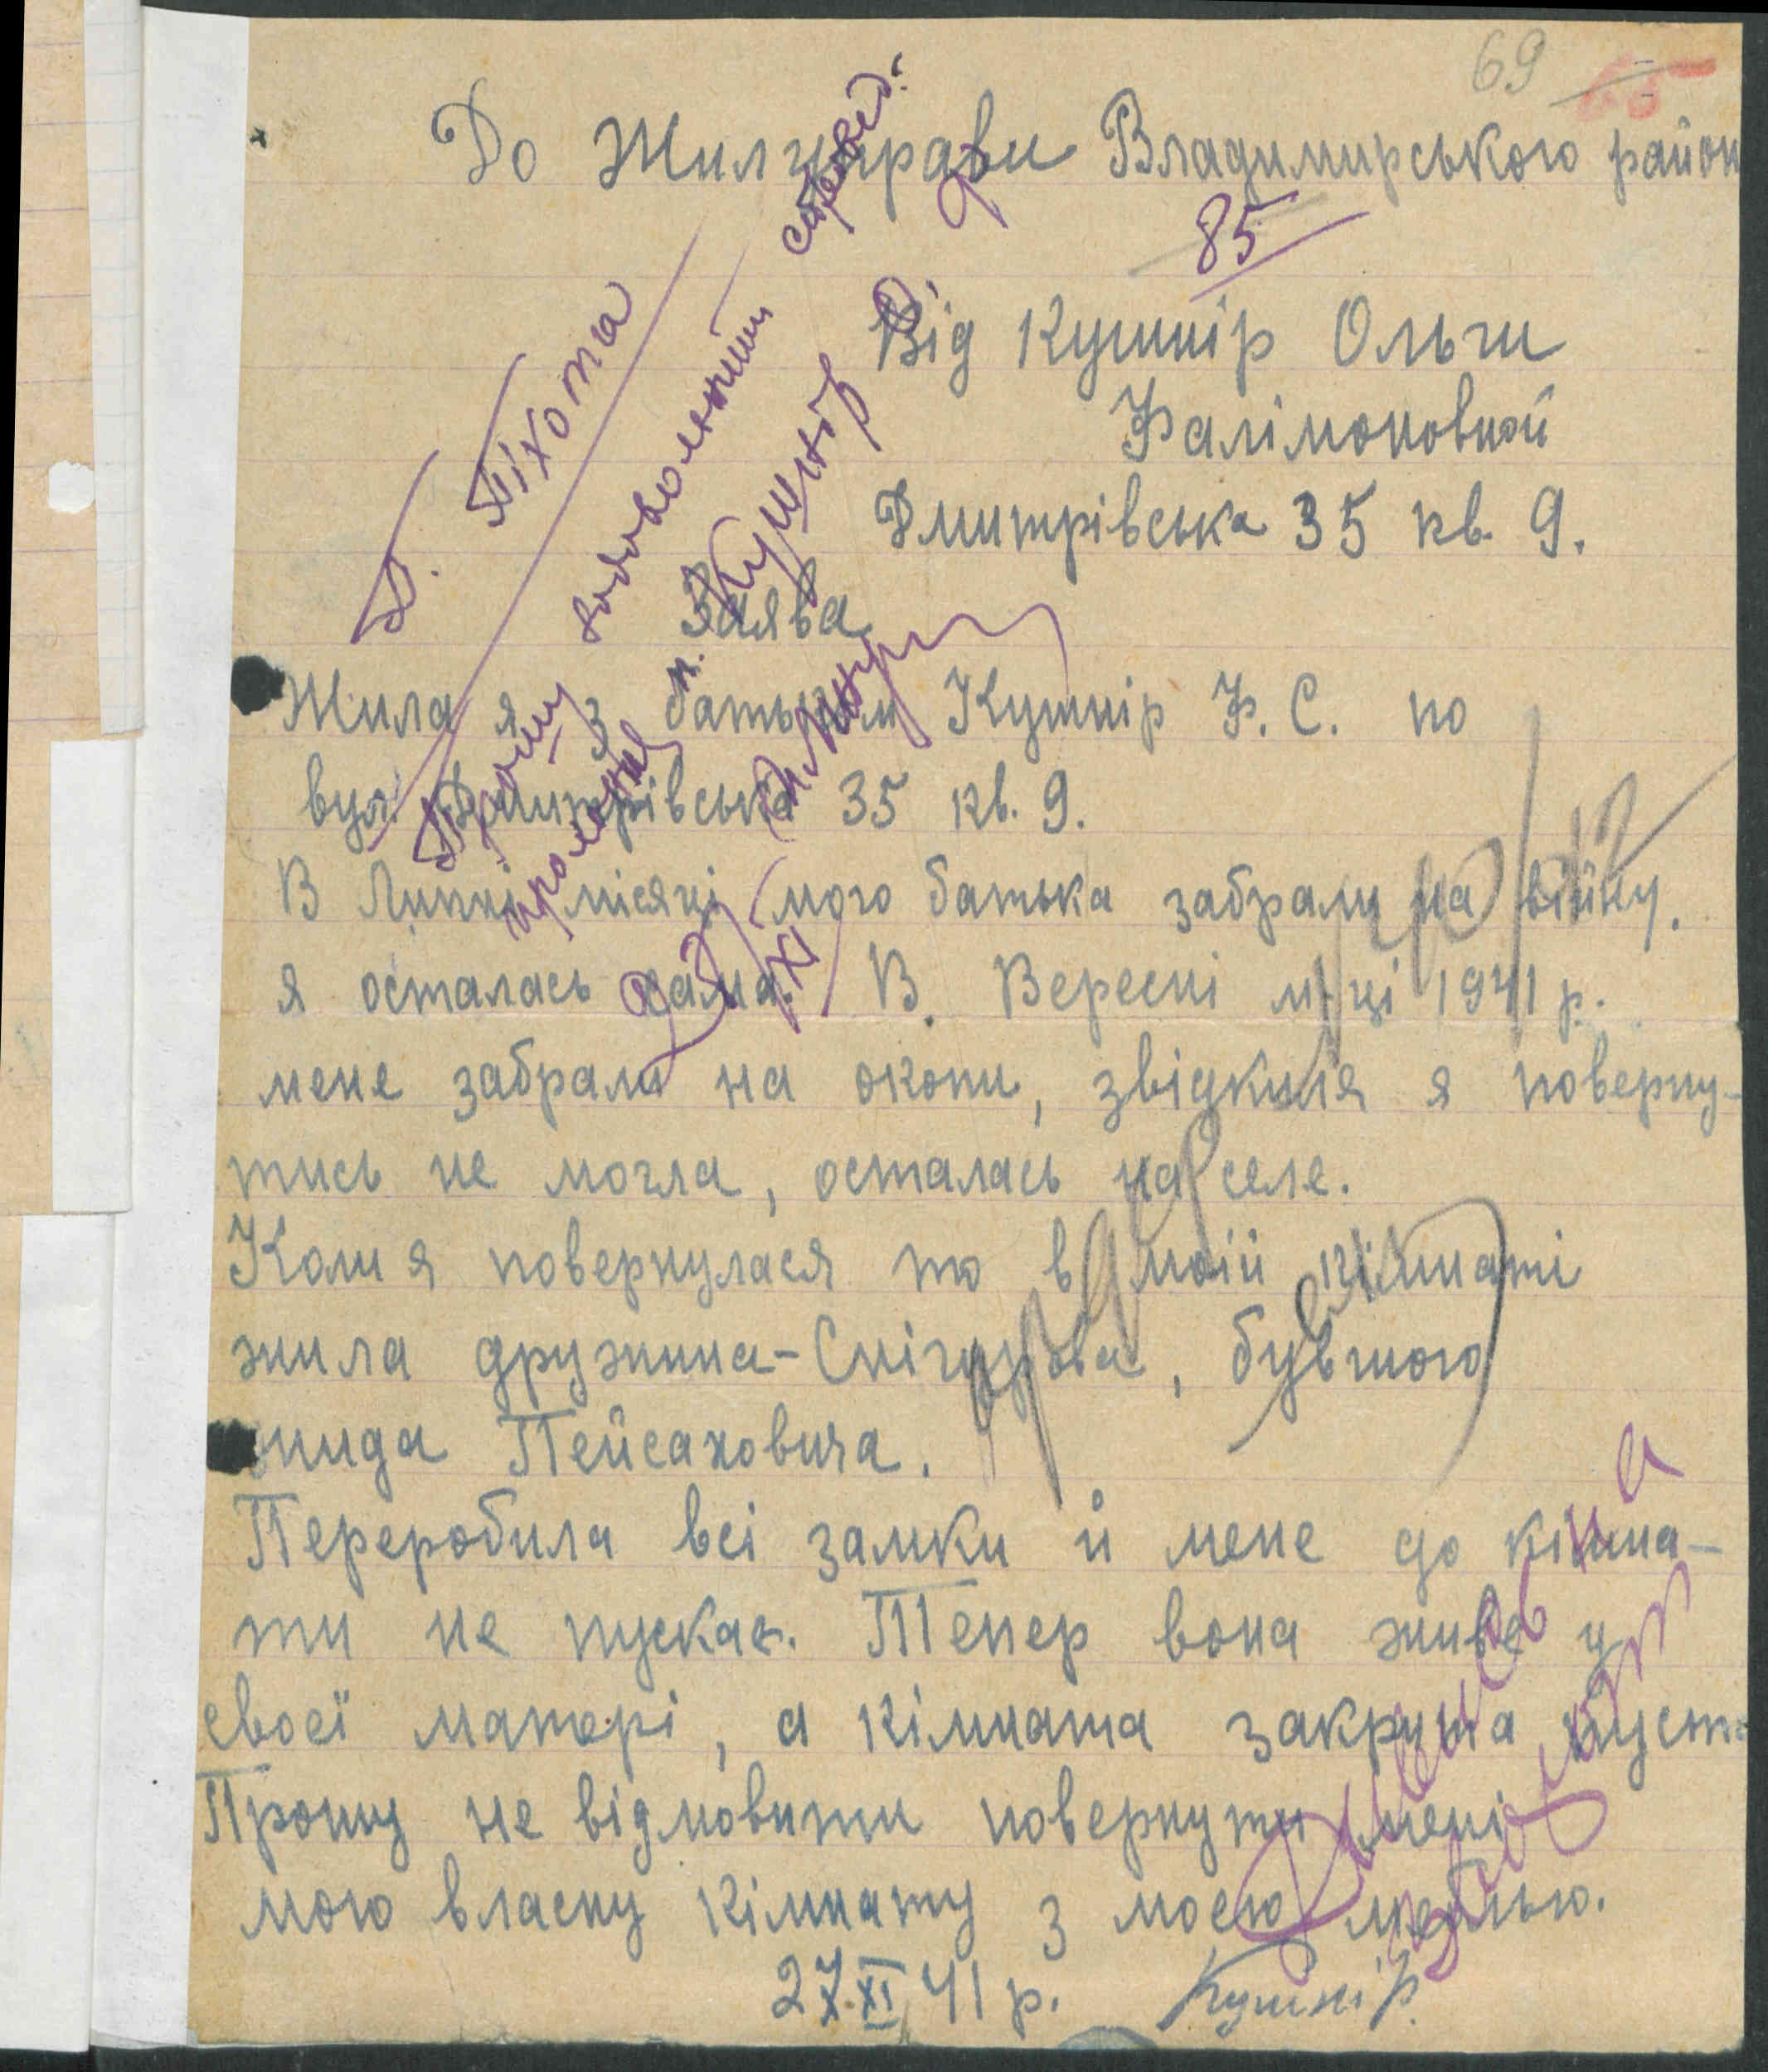 69 65
До Жилуправи Владимирського район
85
Від Кушнір Ольги
Фалімоновной
Дмитрівська 35 кв. 9.
Заява
Жила я з батьком Кушнір Ф. С. по
вул. Дмитрівська 35 кв. 9.
В Липні місяці мого батька забрали на війну.
я осталась сама. В. Вересні м-ці 1941 р.
мене забрали на окопи, звідкиля я поверну-
тись не могла, осталась на селе.
Коли я повернулася то в моій кімнаті
жила дружина-Снігурова, бувшого
жида Пейсаховича.
Переробила всі замки й мене до кімна-
ти не пускає. Тепер вона живе у
своєї матері, а кімната закрита пуст
Прошу не відмовити повернути мені
мою власну кімнату з моєю меблью.
27.XI 41 р. Кушнір.
П. Піхота
Прошу
п. Кушнір